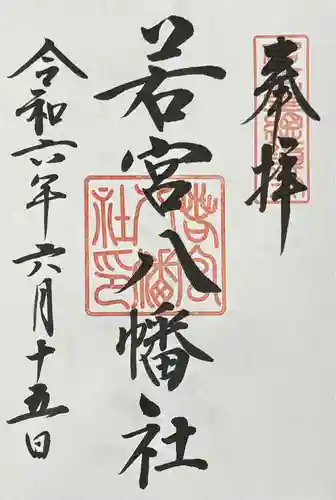 奉拝
若宮八幡社
令和六年六月十五日
若宮八幡社印